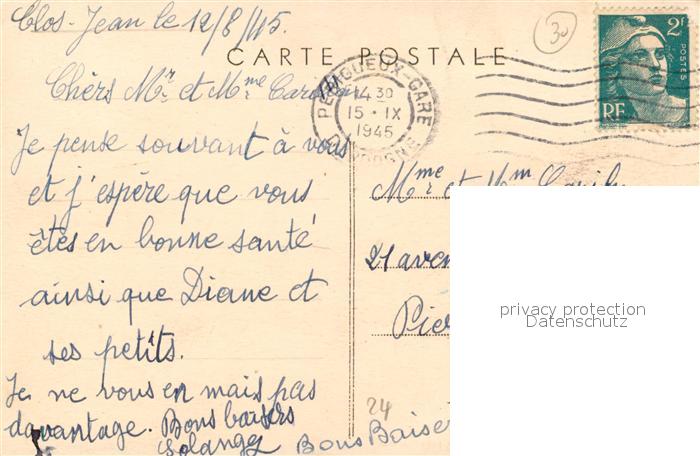 Clos-Jean le 12/8/45.
CARTE POSTALE
30
2F
POSTES
RF
PERIGUEUX-GARE
14 30
15 · IX
1945
DORDOGNE
Chèrs Mr et Mme
Je pense souvant à vous
et j'espère que vous
êtes en bonne santé
ainsi que Diane et
ses petits.
Je ne vous en mais pas
davantage. Bons baisers
Solange
Mme et Mm
21 aven
Pier
24
Bons Baiser
privacy protection
Datenschutz